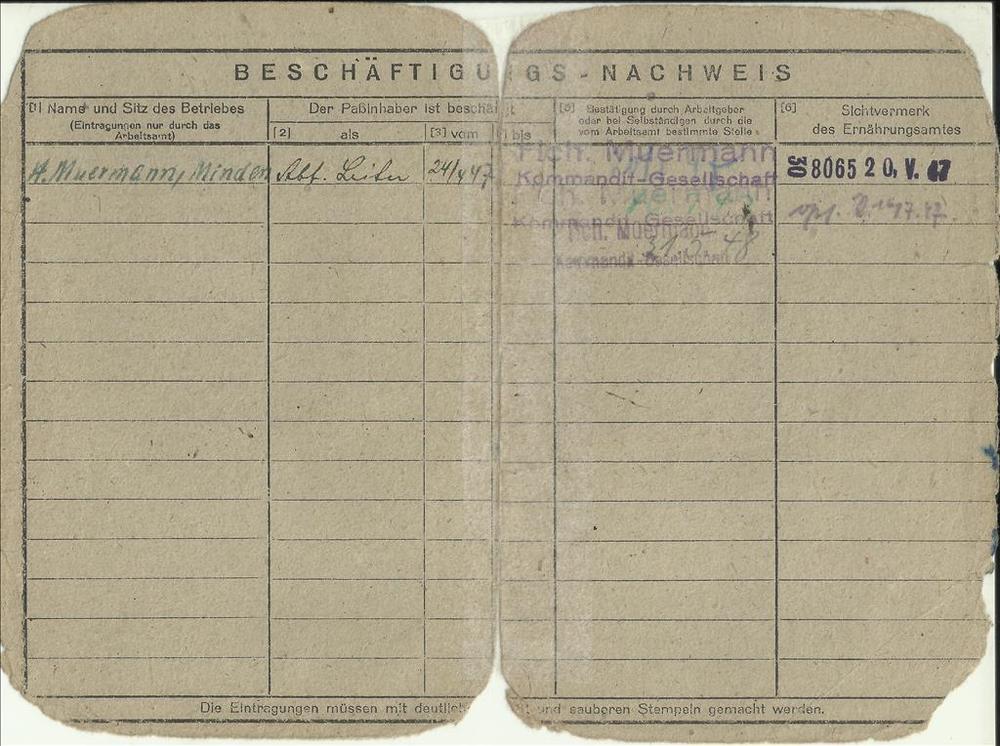 BESCHÄFTIGUNGS-NACHWEIS
[1] Name und Sitz des Betriebes
(Eintragungen nur durch das
Arbeitsamt)
Der Paßinhaber ist beschä t
[2] als
[3] vom
bis
[5] Bestätigung durch Arbeitgeber
oder bei Selbständigen durch die
vom Arbeitsamt bestimmte Stelle
[6] Sichtvermerk
des Ernährungsamtes
H. Muermann, Minden
Abt. Leiter
24/4 47
Rich. Muermann
Kommandit-Gesellschaft
Kommandit-Gesellschaft
Rich. Muermann
31.3.48
Kommandit-Gesellschaft
30 8065 20. V. 47
Die Eintragungen müssen mit deutlich und sauberen Stempeln gemacht werden.